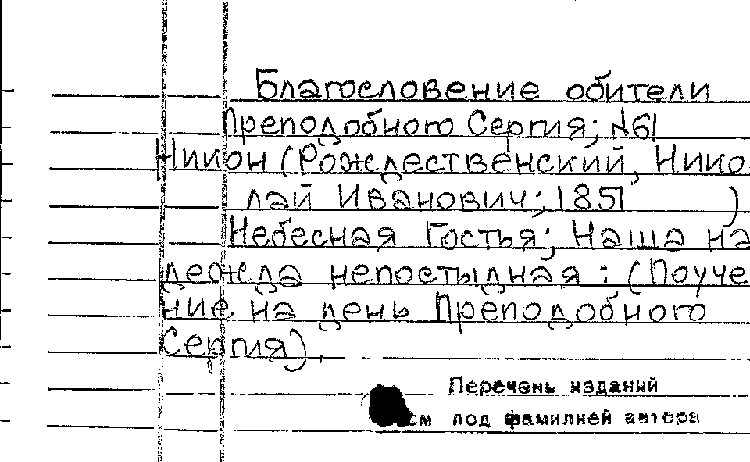 Благословение обители
Преподобного Сергия; №61
Никон (Рождественский, Нико-
лай Иванович; 1851 )
Небесная Гостья; Наша на-
дежда непостыдная: (Поуче-
ние на день Преподобного
Сергия).
Перечень изданий
см под фамилией автора